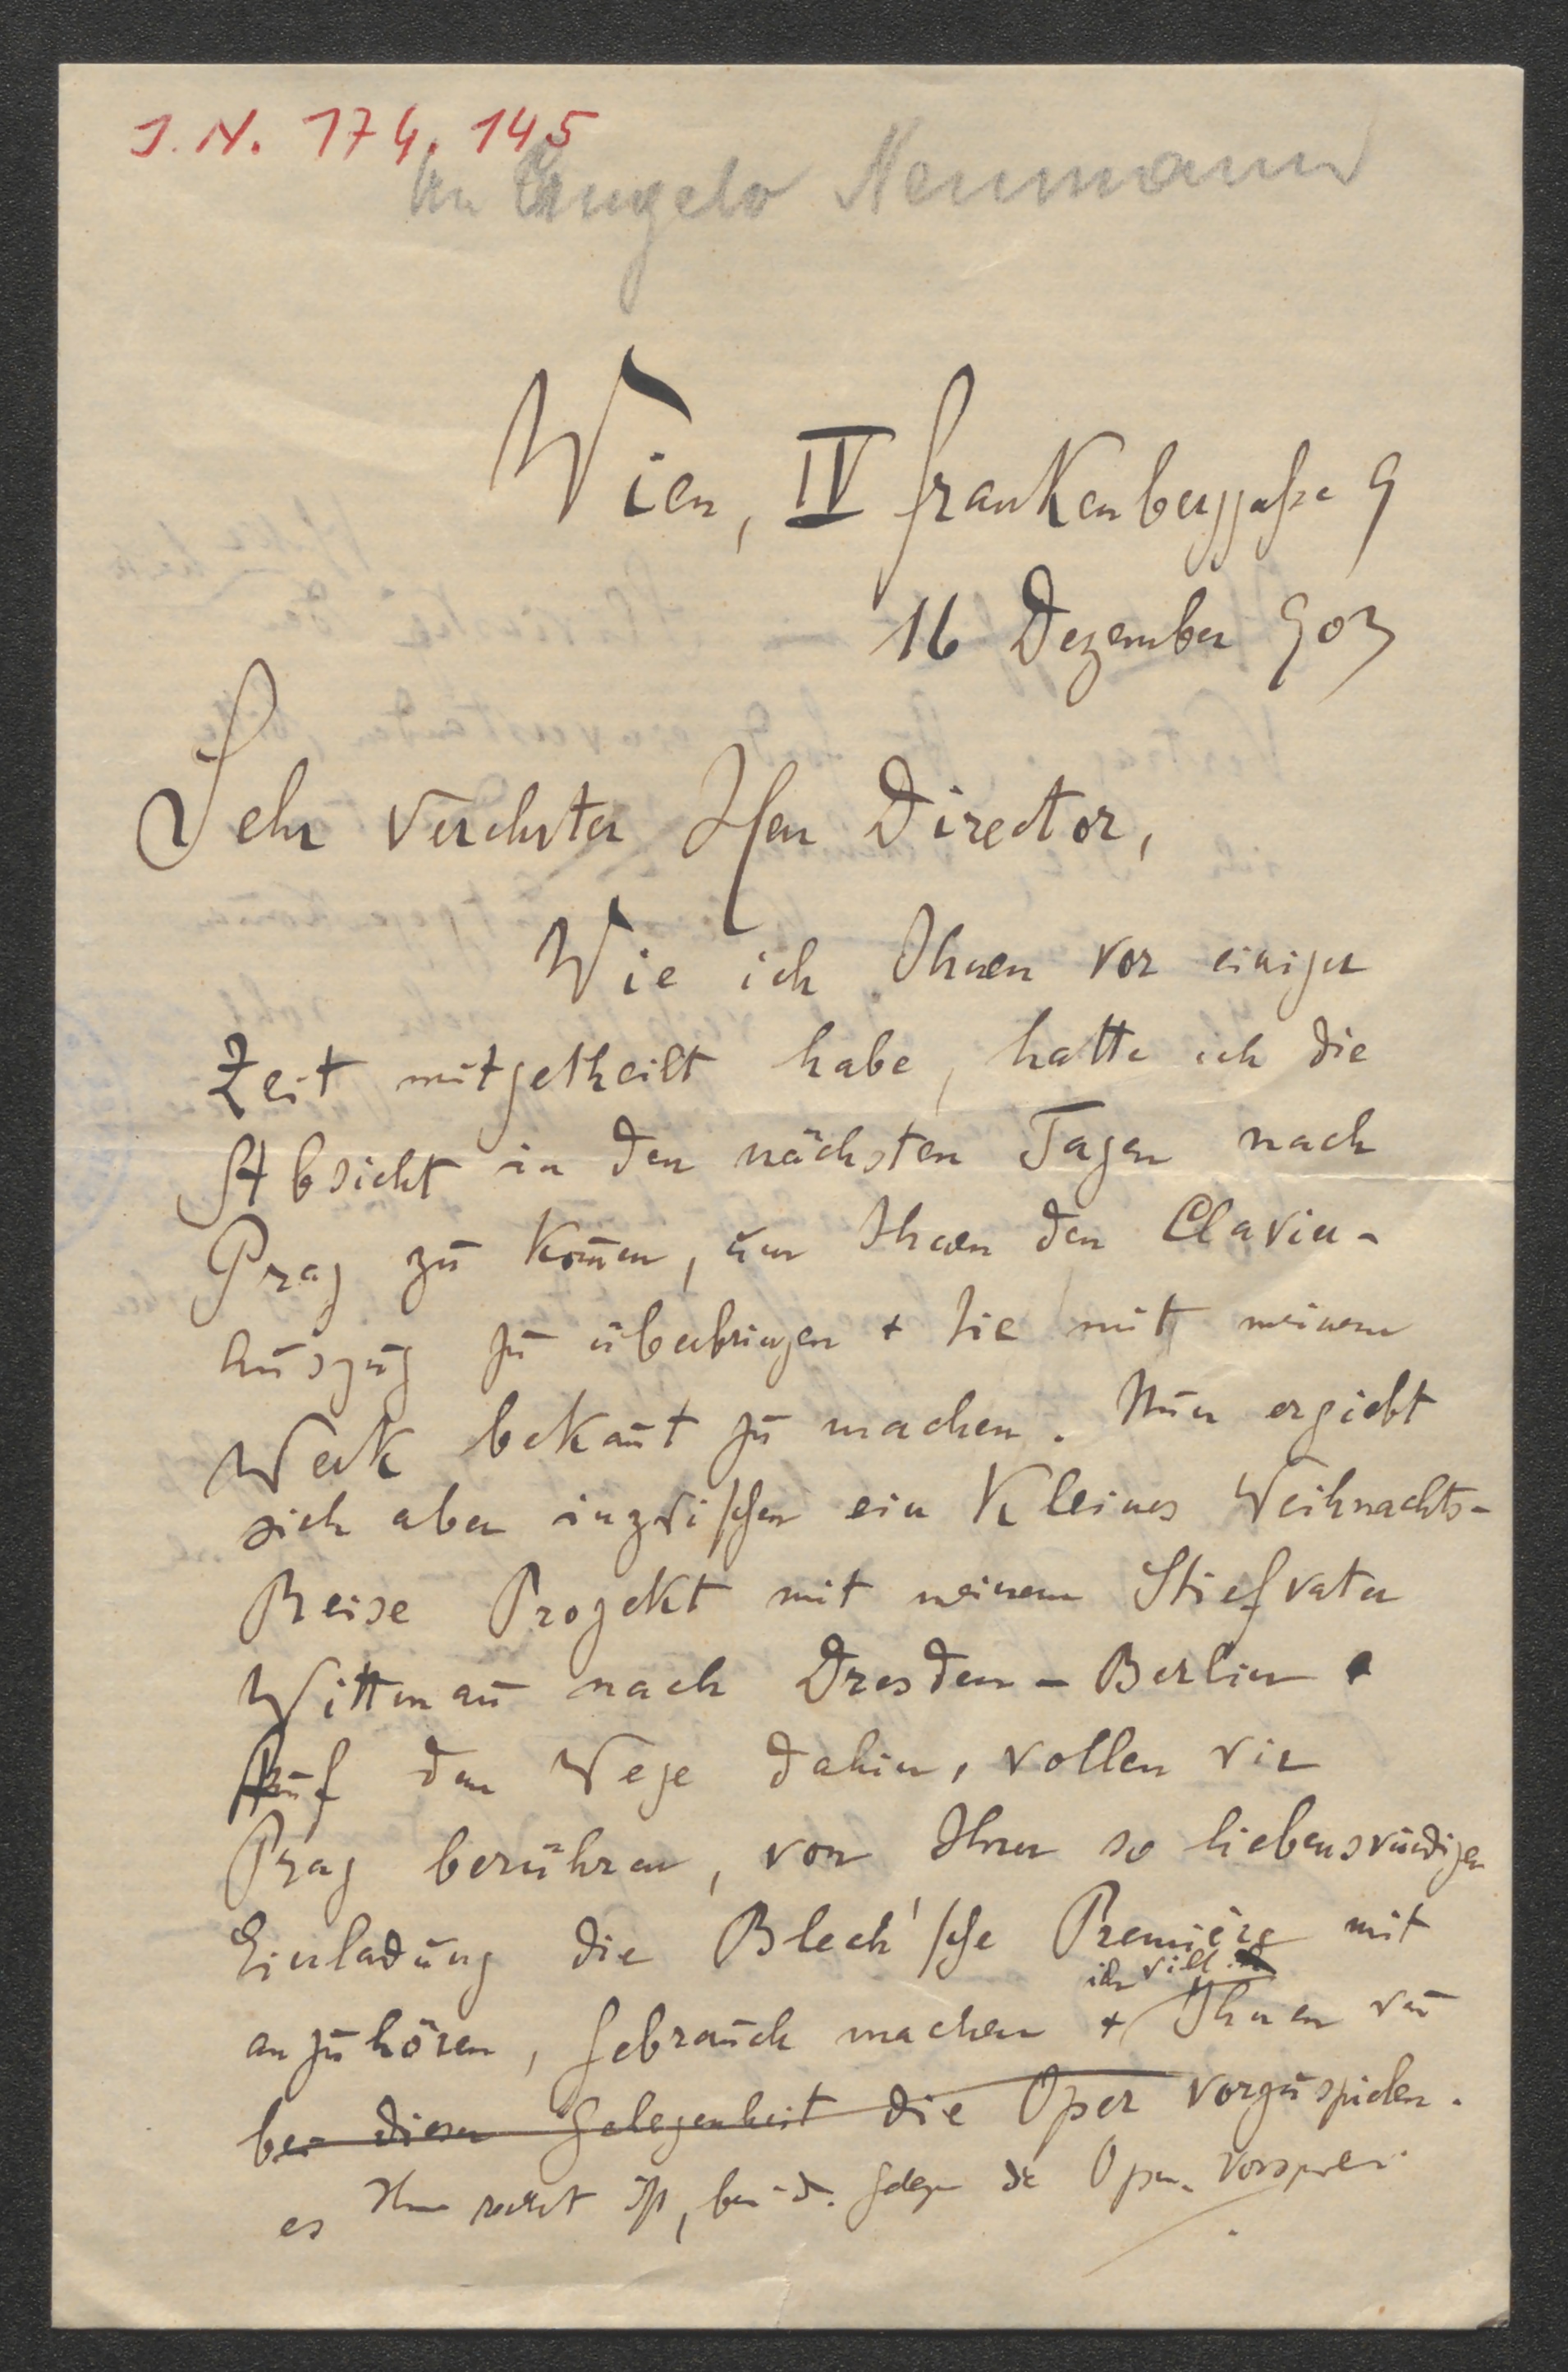 J. N. 174.145
An Angelo Neumann
Wien, IV Frankenberggasse 9
16 Dezember 903
Sehr verehrter Herr Director,
Wie ich Ihnen vor einiger
Zeit mitgetheilt habe, hatte ich die
Absicht in den nächsten Tagen nach
Prag zu kom̄en, um Ihnen den Clavier-
auszug zu überbringen + Sie mit meinem
Werk bekan̄t zu machen. Nun ergiebt
sich aber inzwischen ein kleines Weihnachts-
Reise Projekt mit meinem Stiefvater
Wittman̄ nach Dresden - Berlin
Auf dem Wege dahin, wollen wir
Prag berühren, von Ihrer so liebenswürdigen
Einladung die Blech'sche Première mit
anzuhören, Gebrauch machen + ich will Ihnen wen̄
bei dieser Gelegenheit die Oper vorzuspielen.
es Ihnen recht ist, bei d. Gelegen die Oper vorspielen.